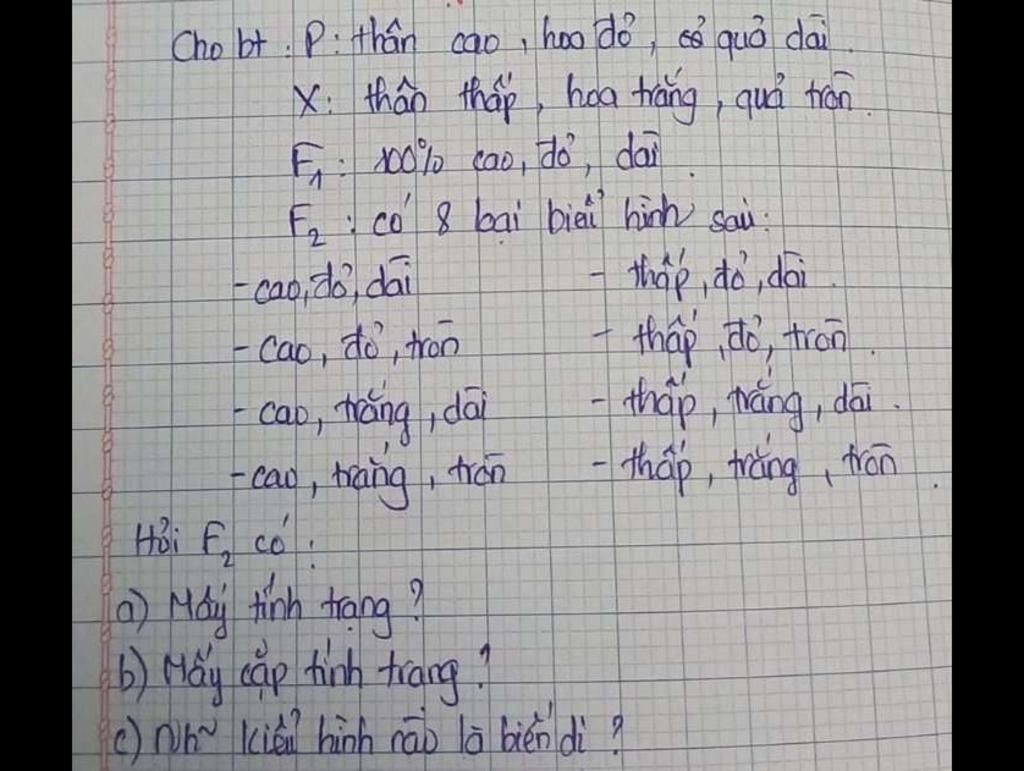 Cho bt: P: thân cao, hoa đỏ, quả dài.
X: thân thấp, hoa trắng, quả tròn.
F₁: 100% cao, đỏ, dài.
F₂: có 8 loại biểu hình sau:
- cao, đỏ, dài - thấp, đỏ, dài.
- cao, đỏ, tròn - thấp, đỏ, tròn.
- cao, trắng, dài - thấp, trắng, dài.
- cao, trắng, tròn - thấp, trắng, tròn.
Hỏi F₂ có:
a) Mấy tính trạng?
b) Mấy cặp tính trạng?
c) Nh~ kiểu hình nào là biến dị?